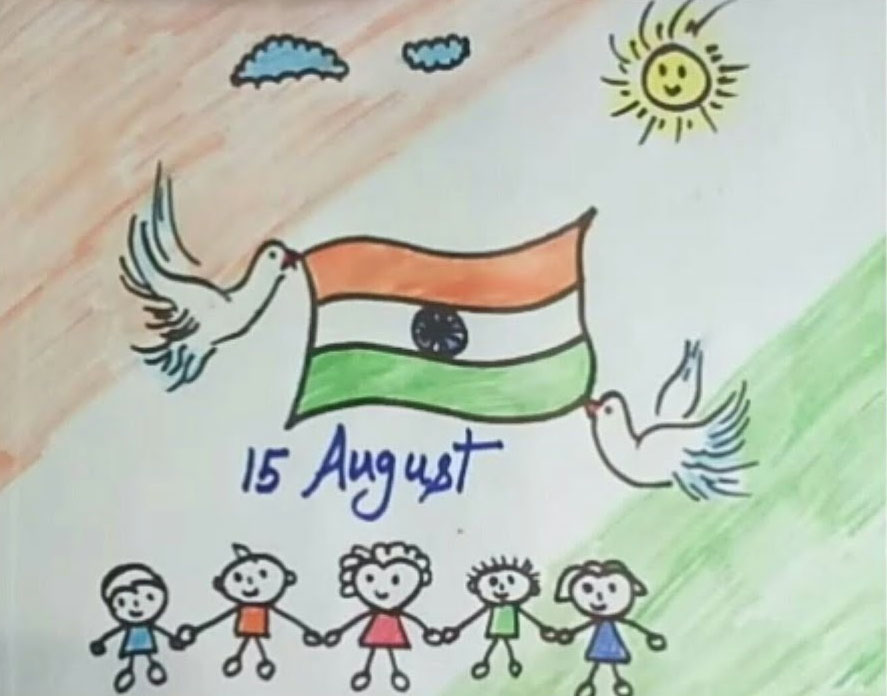 15 August